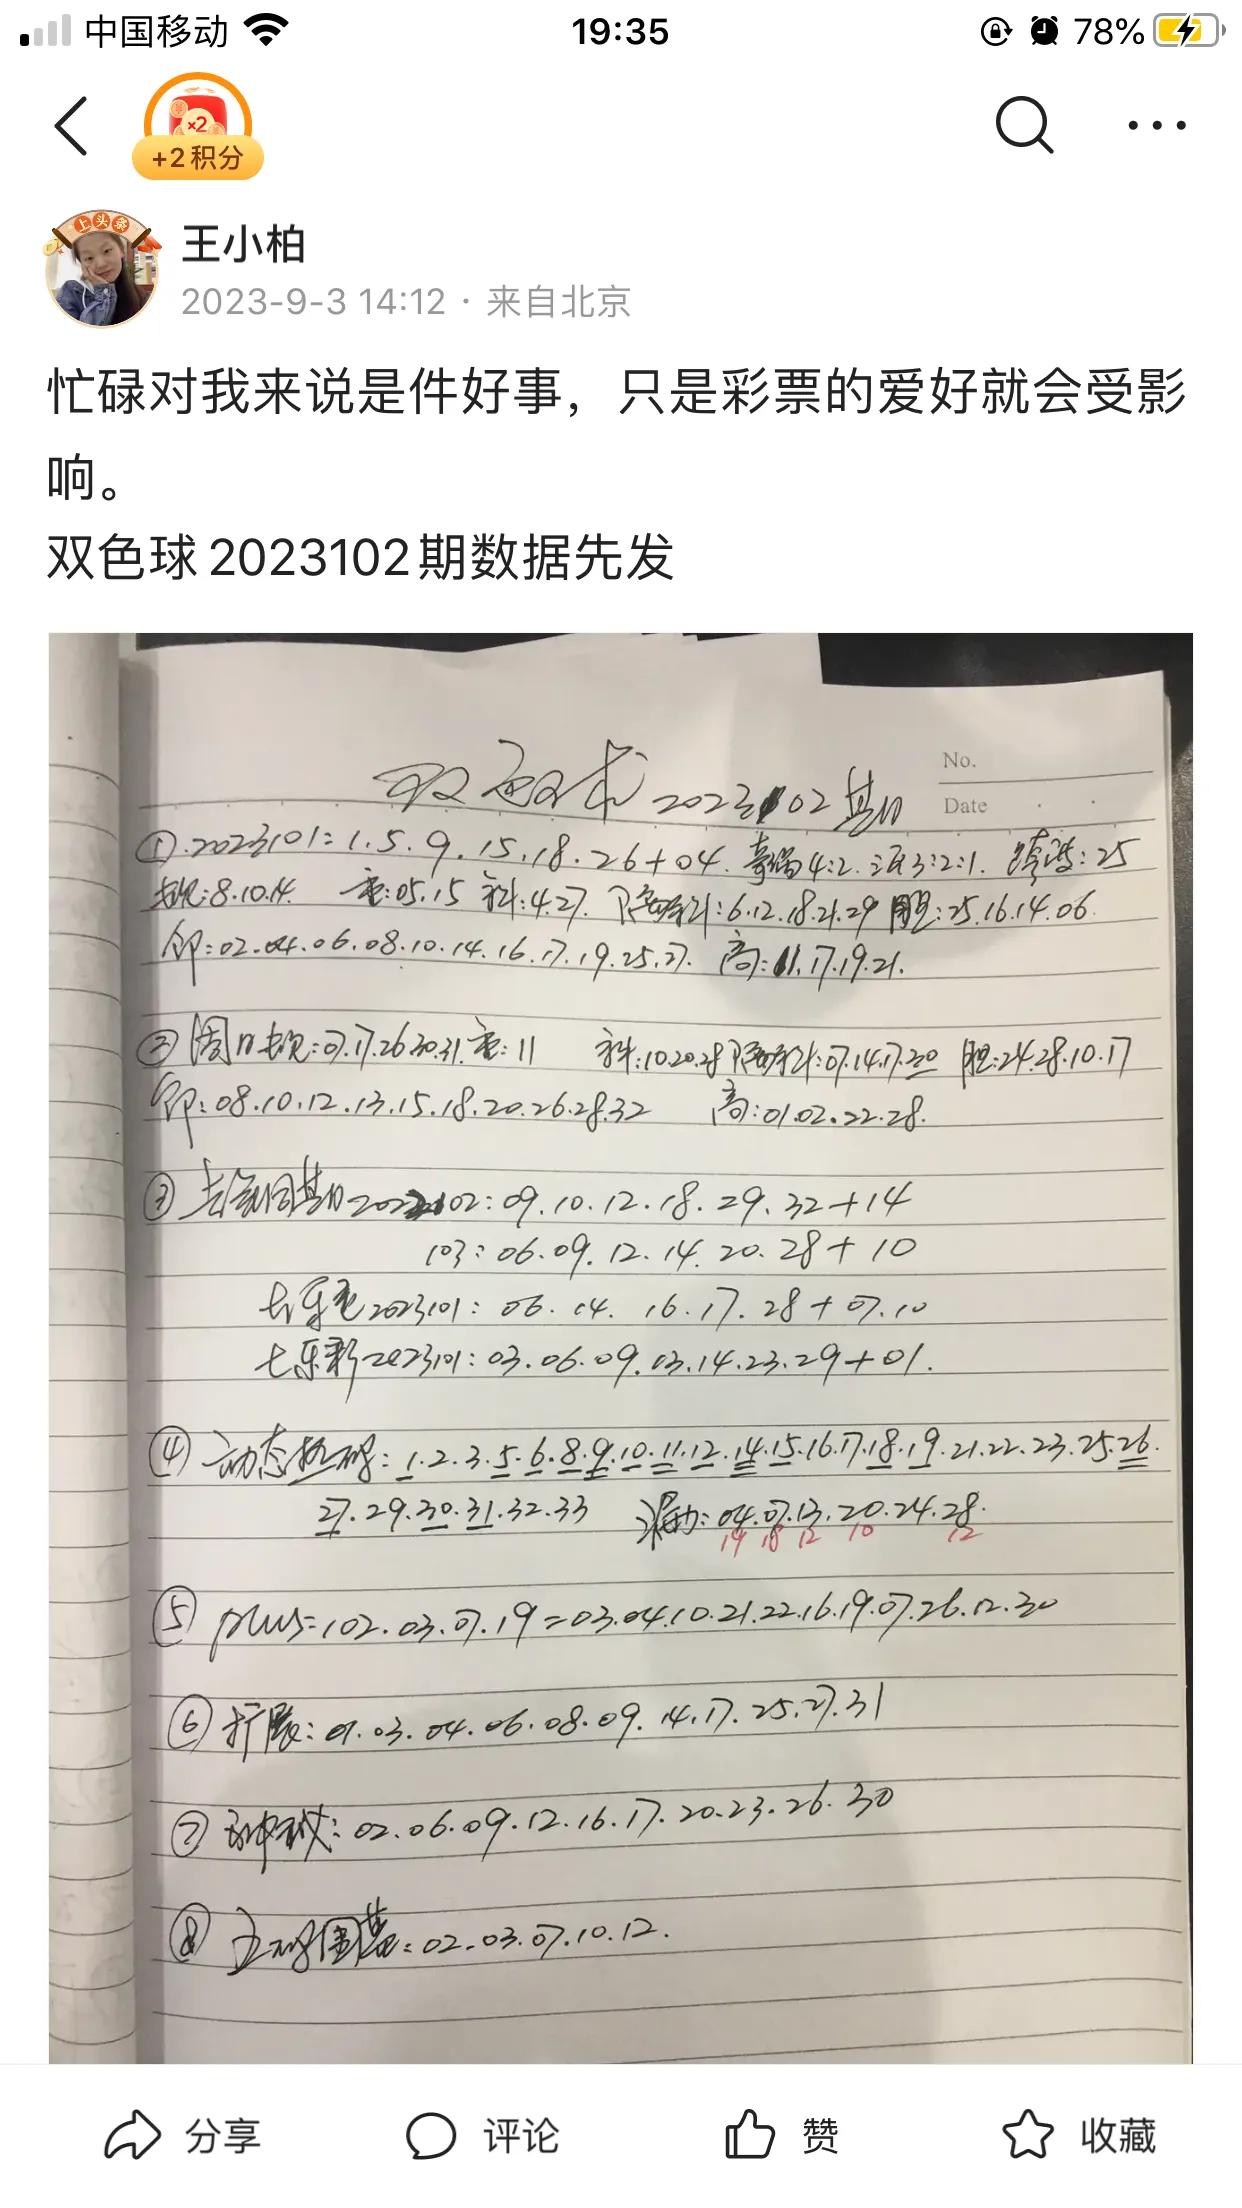 中国移动 19:35 78%
×2
+2积分
上头条
王小柏
2023-9-3 14:12 · 来自北京
忙碌对我来说是件好事，只是彩票的爱好就会受影
响。
双色球2023102期数据先发
No.
双色球 2023102期
Date
①.2023101:1.5.9.15.18.26+04. 奇偶4:2. 三区3:2:1. 跨度:25
:8.10.14 重:05.15 斜:4.27. 隔期斜:6.12.18.21.29 胆:25.16.14.06.
:02.04.06.08.10.14.16.17.19.25.27. 高:11.17.19.21.
②周日:07.17.26.30.31.重:11 斜:10.20.28隔期斜:07.14.17.20 胆:24.28.10.17
:08.10.12.13.15.18.20.26.28.32 高:01.02.22.28.
③去年同期2022102:09.10.12.18.29.32+14
103:06.09.12.14.20.28+10
2023101:06.14.16.17.28+07.10
七乐彩2023101:03.06.09.03.14.23.29+01.
④动态热码:1.2.3.5.6.8.9.10.11.12.14.15.16.17.18.19.21.22.23.25.26.
27.29.30.31.32.33 漏:04.07.13.20.24.28.
19 18 12 10 12
⑤plus=102.03.07.19=03.04.10.21.22.16.19.07.26.12.30
⑥扩展:01.03.04.06.08.09.14.17.25.27.31
⑦:02.06.09.12.16.17.20.23.26.30
⑧:02.03.07.10.12.
分享 评论 赞 收藏